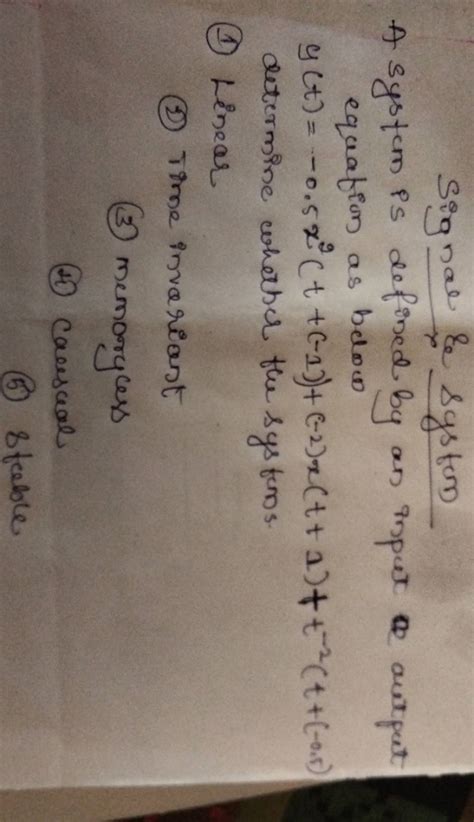 Signal & System
A system is defined by an input & output
equation as below
y(t) = -0.5x²(t+(-1))+(-2)x(t+1)+t⁻²(t+(-0.5)
determine whether the systems.
① Linear
② Time invariant
③ memoryless
④ Causal
⑤ Stable